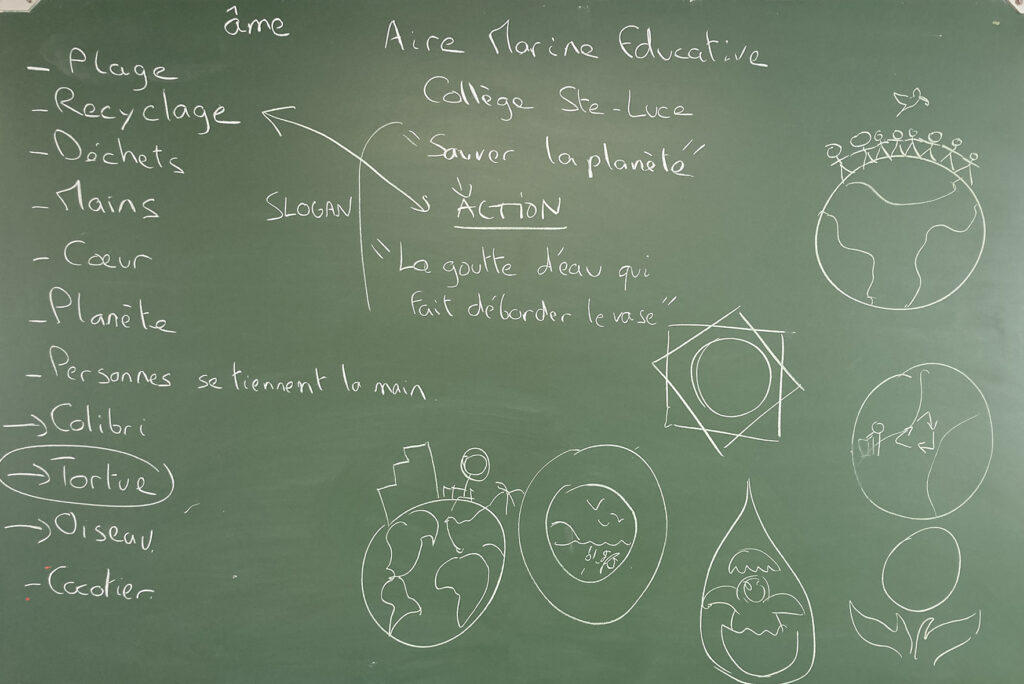 âme
Aire Marine Educative
Collège Ste-Luce
- Plage
- Recyclage
- Déchets
- Mains
- Cœur
- Planète
- Personnes se tiennent la main.
→ Colibri
→ Tortue
→ Oiseau
- Cocotier
SLOGAN
"Sauver la planète"
ACTION
"La goutte d'eau qui
fait déborder le vase"